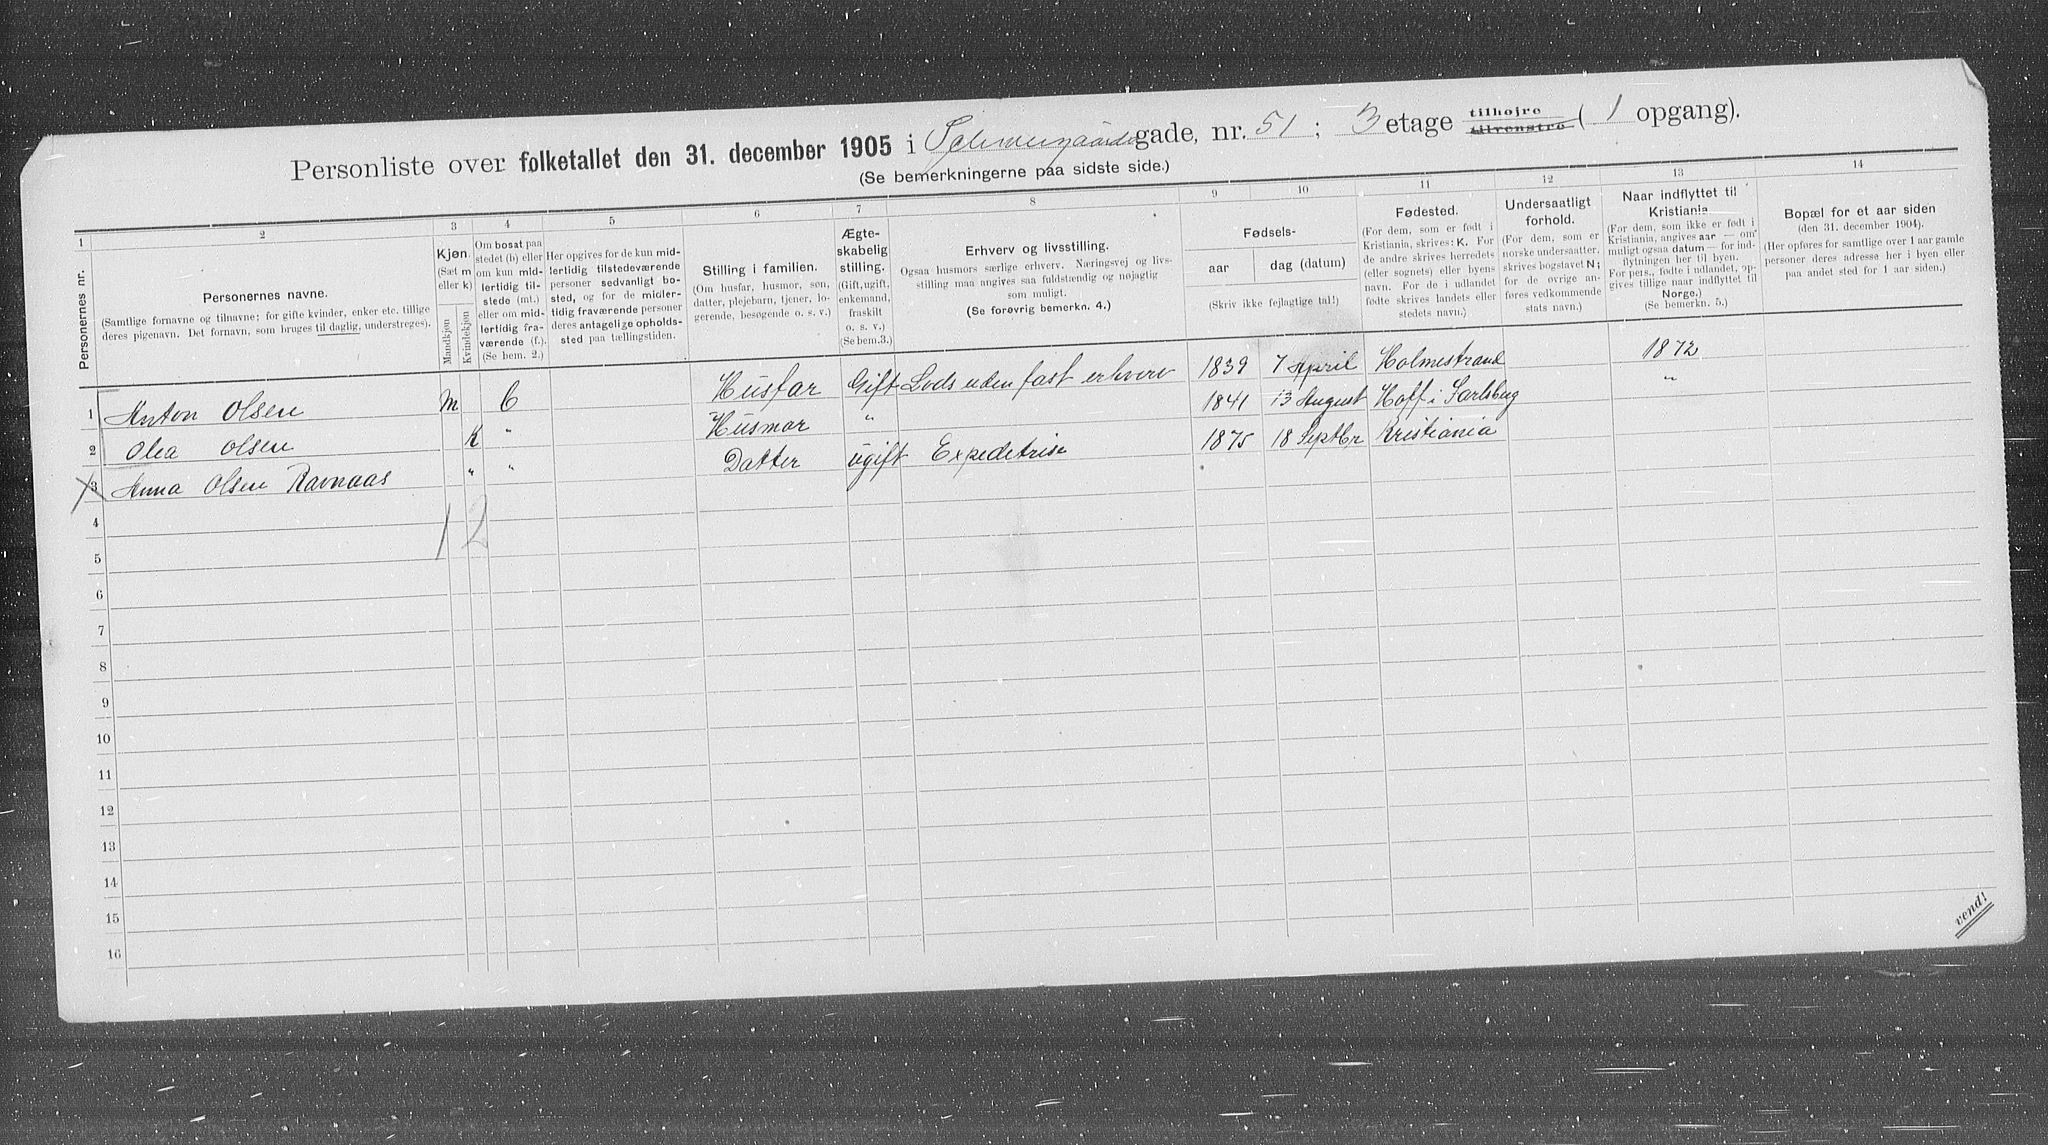 Personliste over folketallet den 31. december 1905 i Schweigaards gade, nr. 51 ; 3 etage tilhøjre tilvenstre ( 1 opgang).
(Se bemerkningerne paa sidste side.)
1 2 3 4 5 6 7 8 9 10 11 12 13 14
Personernes nr.
Personernes navne.
(Samtlige fornavne og tilnavne; for gifte kvinder, enker etc. tillige
deres pigenavn. Det fornavn, som bruges til daglig, understreges).
Kjøn.
(Sæt m
eller k)
Mandkjøn
Kvindekjøn
Om bosat paa
stedet (b) eller
om kun mid-
lertidig til-
stede (mt.)
eller om mid-
lertidig fra-
værende (f.).
(Se bem. 2.)
Her opgives for de kun mid-
lertidig tilstedeværende
personer sedvanligt bo-
sted, og for de midler-
tidig fraværende personer
deres antagelige opholds-
sted paa tællingstiden.
Stilling i familien.
(Om husfar, husmor, søn,
datter, plejebarn, tjener, lo-
gerende, besøgende o. s. v.)
Ægte-
skabelig
stilling.
(Gift, ugift,
enkemand,
fraskilt
o. s. v.)
(Se bem. 3.)
Erhverv og livsstilling.
Ogsaa husmors særlige erhverv. Næringsvej og livs-
stilling maa angives saa fuldstændig og nøjagtig
som muligt.
(Se forøvrig bemerkn. 4.)
Fødsels-
aar dag (datum)
(Skriv ikke fejlagtige tal!)
Fødested.
(For dem, som er født i
Kristiania, skrives: K. For
de andre skrives herredets
(eller sognets) eller byens
navn. For de i udlandet
fødte skrives landets eller
stedets navn.)
Undersaatligt
forhold.
(For dem, som er
norske undersaatter,
skrives bogstavet N;
for de øvrige an-
føres vedkommende
stats navn.)
Naar indflyttet til
Kristiania
(For dem, som ikke er født i
Kristiania, angives aar — om
muligt ogsaa datum — for ind-
flytningen her til byen.
For pers., fødte i udlandet, op-
gives tillige naar indflyttet til
Norge.)
(Se bemerkn. 5.)
Bopæl for et aar siden
(den 31. december 1904).
(Her opføres for samtlige over 1 aar gamle
personer deres adresse her i byen eller
paa andet sted for 1 aar siden.)
1 Anton Olsen M b Husfar Gift Lods uden fast erhverv 1839 7 April Holmestrand 1872
2 Olea Olsen K " Husmor " 1841 13 August Hoff i Jarlsberg "
3 Anna Olsen Ravnaas " " Datter ugift Expeditrise 1875 18 Septbr Kristiania
4
1 2
5
6
7
8
9
10
11
12
13
14
15
16
vend!